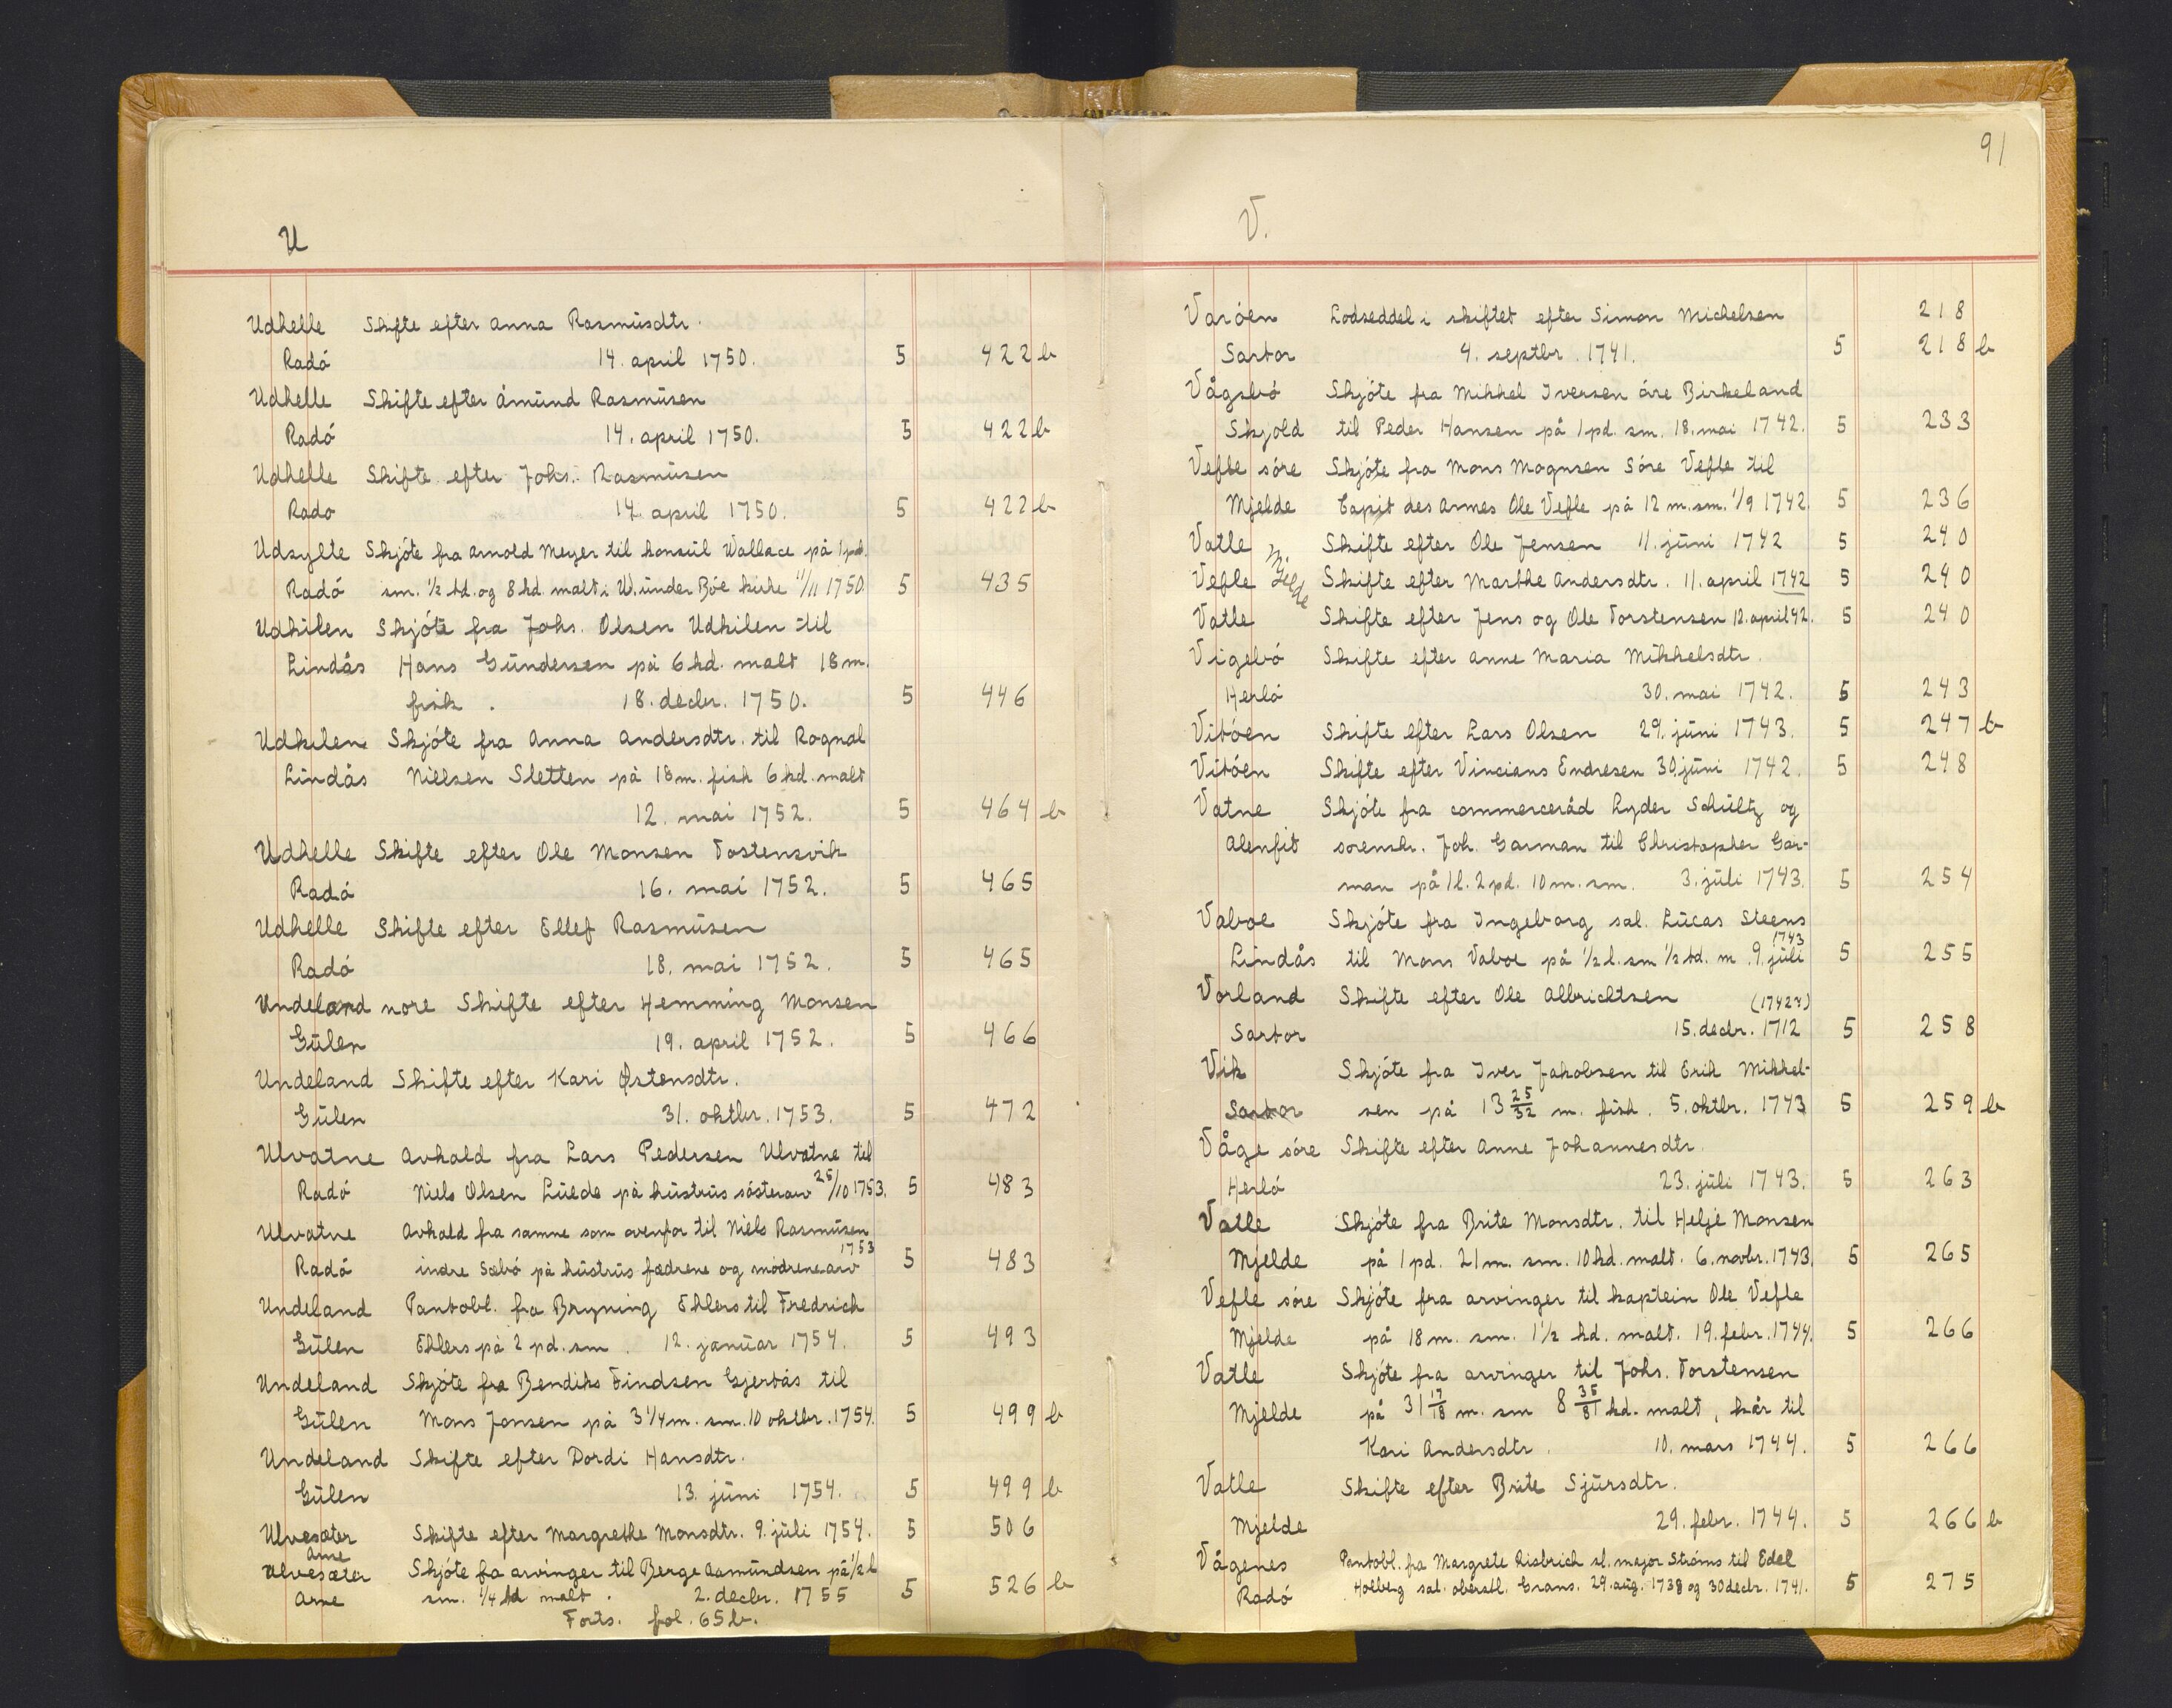 U
Udhelle Skifte efter Anna Rasmüsdtr.
Radó 14. april 1750. 5 422 b
Udhelle Skifte efter Ámünd Rasmüsen
Radó 14. april 1750. 5 422 b
Udhelle Skifte efter Johs. Rasmüsen
Rado 14. april 1750. 5 422 b
Udsylte Skjóte fra Arnold Meyer til konsül Wallace på 1 pd.
Radó sm. 1/2 td. og 8 kd. malt i W. ünder Bóe kirke 11/11 1750. 5 435
Udkilen Skjóte fra Johs. Olsen Udkilen til
Lindås Hans Gündersen på 6 kd. malt 18 m.
fisk. 18. decbr. 1750. 5 446
Udkilen Skjóte fra Anna Andersdtr. til Rognal
Lindås Nielsen Sletten på 18 m. fisk 6 kd. malt
12. mai 1752. 5 464 b
Udhelle Skifte efter Ole Monsen Tostensvik
Radó 16. mai 1752. 5 465
Udhelle Skifte efter Ellef Rasmüsen
Radó 18. mai 1752. 5 465
Undeland nore Skifte efter Hemming Monsen
Gülen 19. april 1752. 5 466
Undeland Skifte efter Kari Østensdtr.
Gülen 31. oktbr. 1753. 5 472
Ulvatne Avkald fra Lars Pedersen Ulvatne til
Radó Niels Olsen Lüede på hüstrüs sósterarv 25/10 1753. 5 483
Ulvatne Avkald fra samme som ovenfor til Niels Rasmüsen
1753
Radó indre Sæbó på hüstrüs fædrene og módrene arv 5 483
Undeland Pantobl. fra Bryning Ehlers til Fredrich
Gülen Ehlers på 2 pd. sm. 12. janüar 1754. 5 493
Undeland Skjóte fra Bendiks Findsen Gjertås til
Gülen Mons Jonsen på 3 1/4 m. sm. 10 oktbr. 1754. 5 499 b
Undeland Skifte efter Dordi Hansdtr.
Gülen 13. jüni 1754. 5 499 b
Ulvesæter Skifte efter Margrethe Monsdtr. 9. jüli 1754. 5 506
Arne
Ulvesæter Skjóte fra arvinger til Berge Aamündsen på 1/2 l
Arne sm. 1/4 td malt. 2. decbr. 1755 5 526 b
Forts. fol. 65 b.
91
V.
Varóen Lodseddel i skiftet efter Simon Michelsen 218
Sartor 4. septbr. 1741. 5 218 b
Vågsbó Skjóte fra Mikkel Iversen óvre Birkeland
Skjold til Peder Hansen på 1 pd. sm. 18. mai 1742. 5 233
Vefle sóre Skjóte fra Mons Mognsen Sóre Vefle til
Mjelde Capit des Armes Ole Vefle på 12 m. sm. 1/9 1742. 5 236
Vatle Skifte efter Ole Jensen 11. jüni 1742 5 240
Mjelde
Vefle Skifte efter Marthe Andersdtr. 11. april 1742 5 240
Vatle Skifte efter Jens og Ole Torstensen 12. april 42. 5 240
Vigebó Skifte efter Anne Maria Mikkelsdtr.
Herló 30. mai 1742. 5 243
Vitóen Skifte efter Lars Olsen 29. jüni 1743. 5 247 b
Vitóen Skifte efter Vincians Endresen 30. jüni 1742. 5 248
Vatne Skjóte fra commerceråd Lyder Schültz og
Alenfit sorenskr. Joh. Garman til Christopher Gar-
man på 1 l. 2 pd. 10 m. sm. 3. jüli 1743. 5 254
Valvoe Skjóte fra Ingeborg sal. Lücas Steens
1743
Lindås til Mons Valvoe på 1/2 l. sm 1/2 td. m. 9. jüli 5 255
Vorland Skifte efter Ole Albrichtsen (1742?)
Sartor 15. decbr. 1712 5 258
Vik Skjóte fra Iver Jakobsen til Erik Mikkel-
Sartor sen på 13 25/32 m. fisk. 5. oktbr. 1743 5 259 b
Våge sóre Skifte efter Anne Johannesdtr.
Herló 23. jüli 1743. 5 263
Vatle Skjóte fra Brite Monsdtr. til Helje Monsen
Mjelde på 1 pd. 21 m. sm. 10 kd. malt. 6. novbr. 1743. 5 265
Vefle sóre Skjóte fra arvinger til kaptein Ole Vefle
Mjelde på 18 m. sm. 1 1/2 kd. malt. 19. febr. 1744. 5 266
Vatle Skjóte fra arvinger til Johs. Torstensen
Mjelde på 31 17/18 m. sm 8 35/81 kd. malt, kår til
Kari Andersdtr. 10. mars 1744. 5 266
Vatle Skifte efter Brite Sjürsdtr.
Mjelde 29. febr. 1744. 5 266 b
Vågenes Pantobl. fra Margrete Risbrich sl. major Stróms til Edel
Radó Holberg sal. oberstl. Grans. 29. aüg. 1738 og 30 decbr. 1741. 5 275